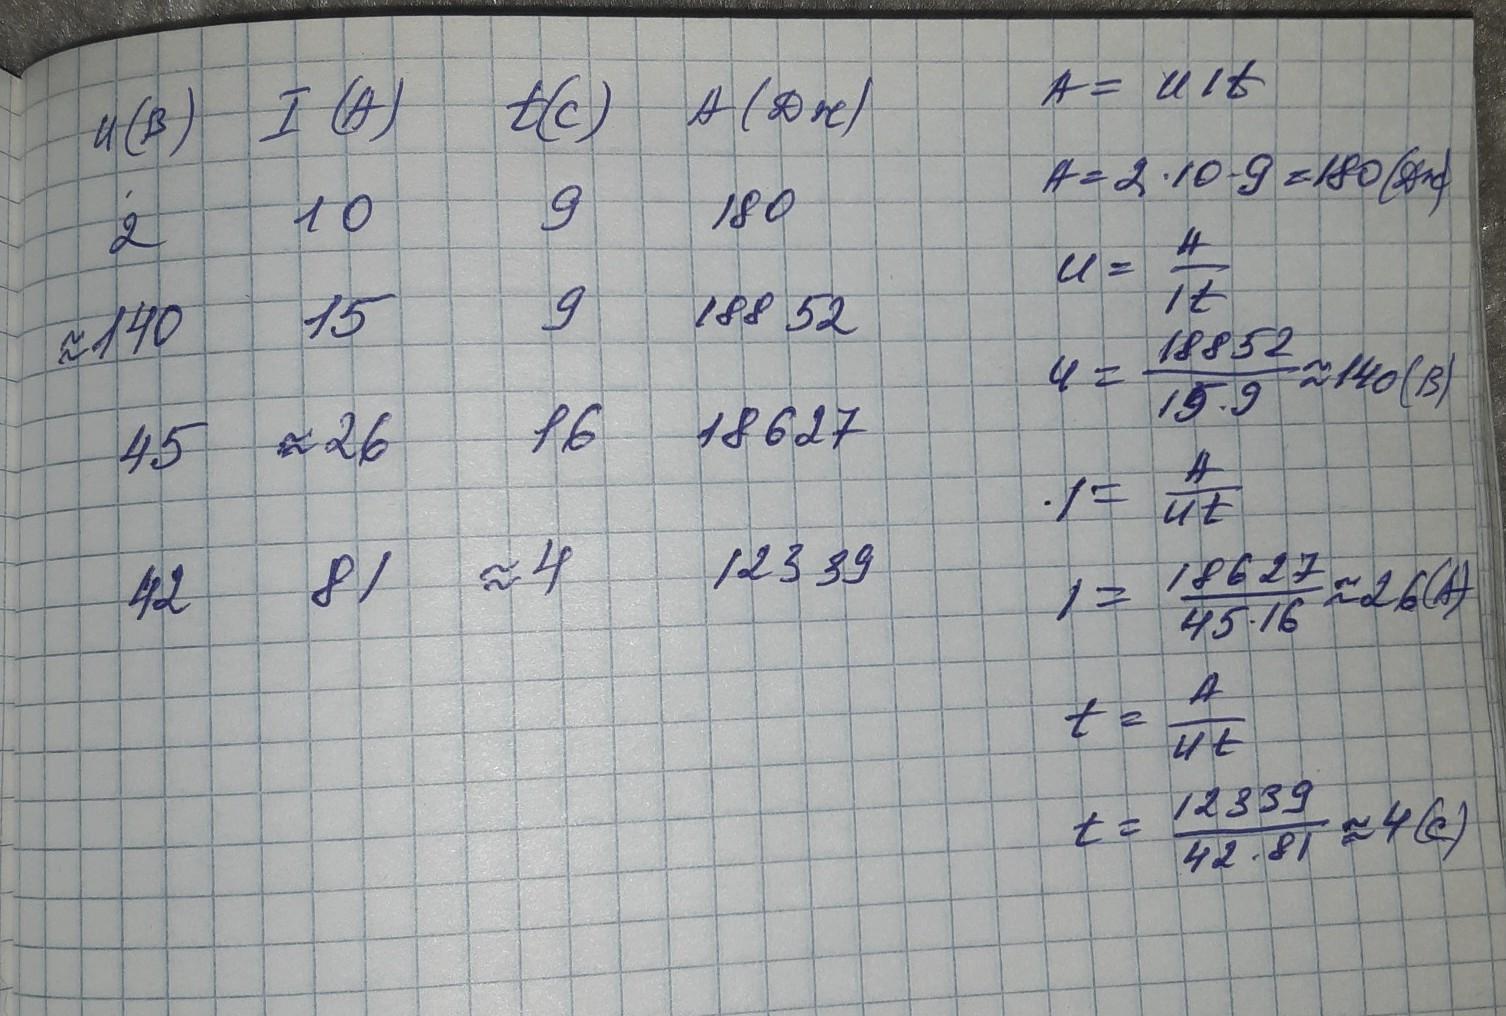 U(В) I(А) t(с) A(Дж)
2 10 9 180
≈140 15 9 18852
45 ≈26 16 18627
42 81 ≈4 12339
A = UIt
A = 2·10·9 = 180(Дж)
U = A/It
U = 18852/15·9 ≈ 140(В)
I = A/Ut
I = 18627/45·16 ≈ 26(А)
t = A/Ut
t = 12339/42·81 ≈ 4(с)